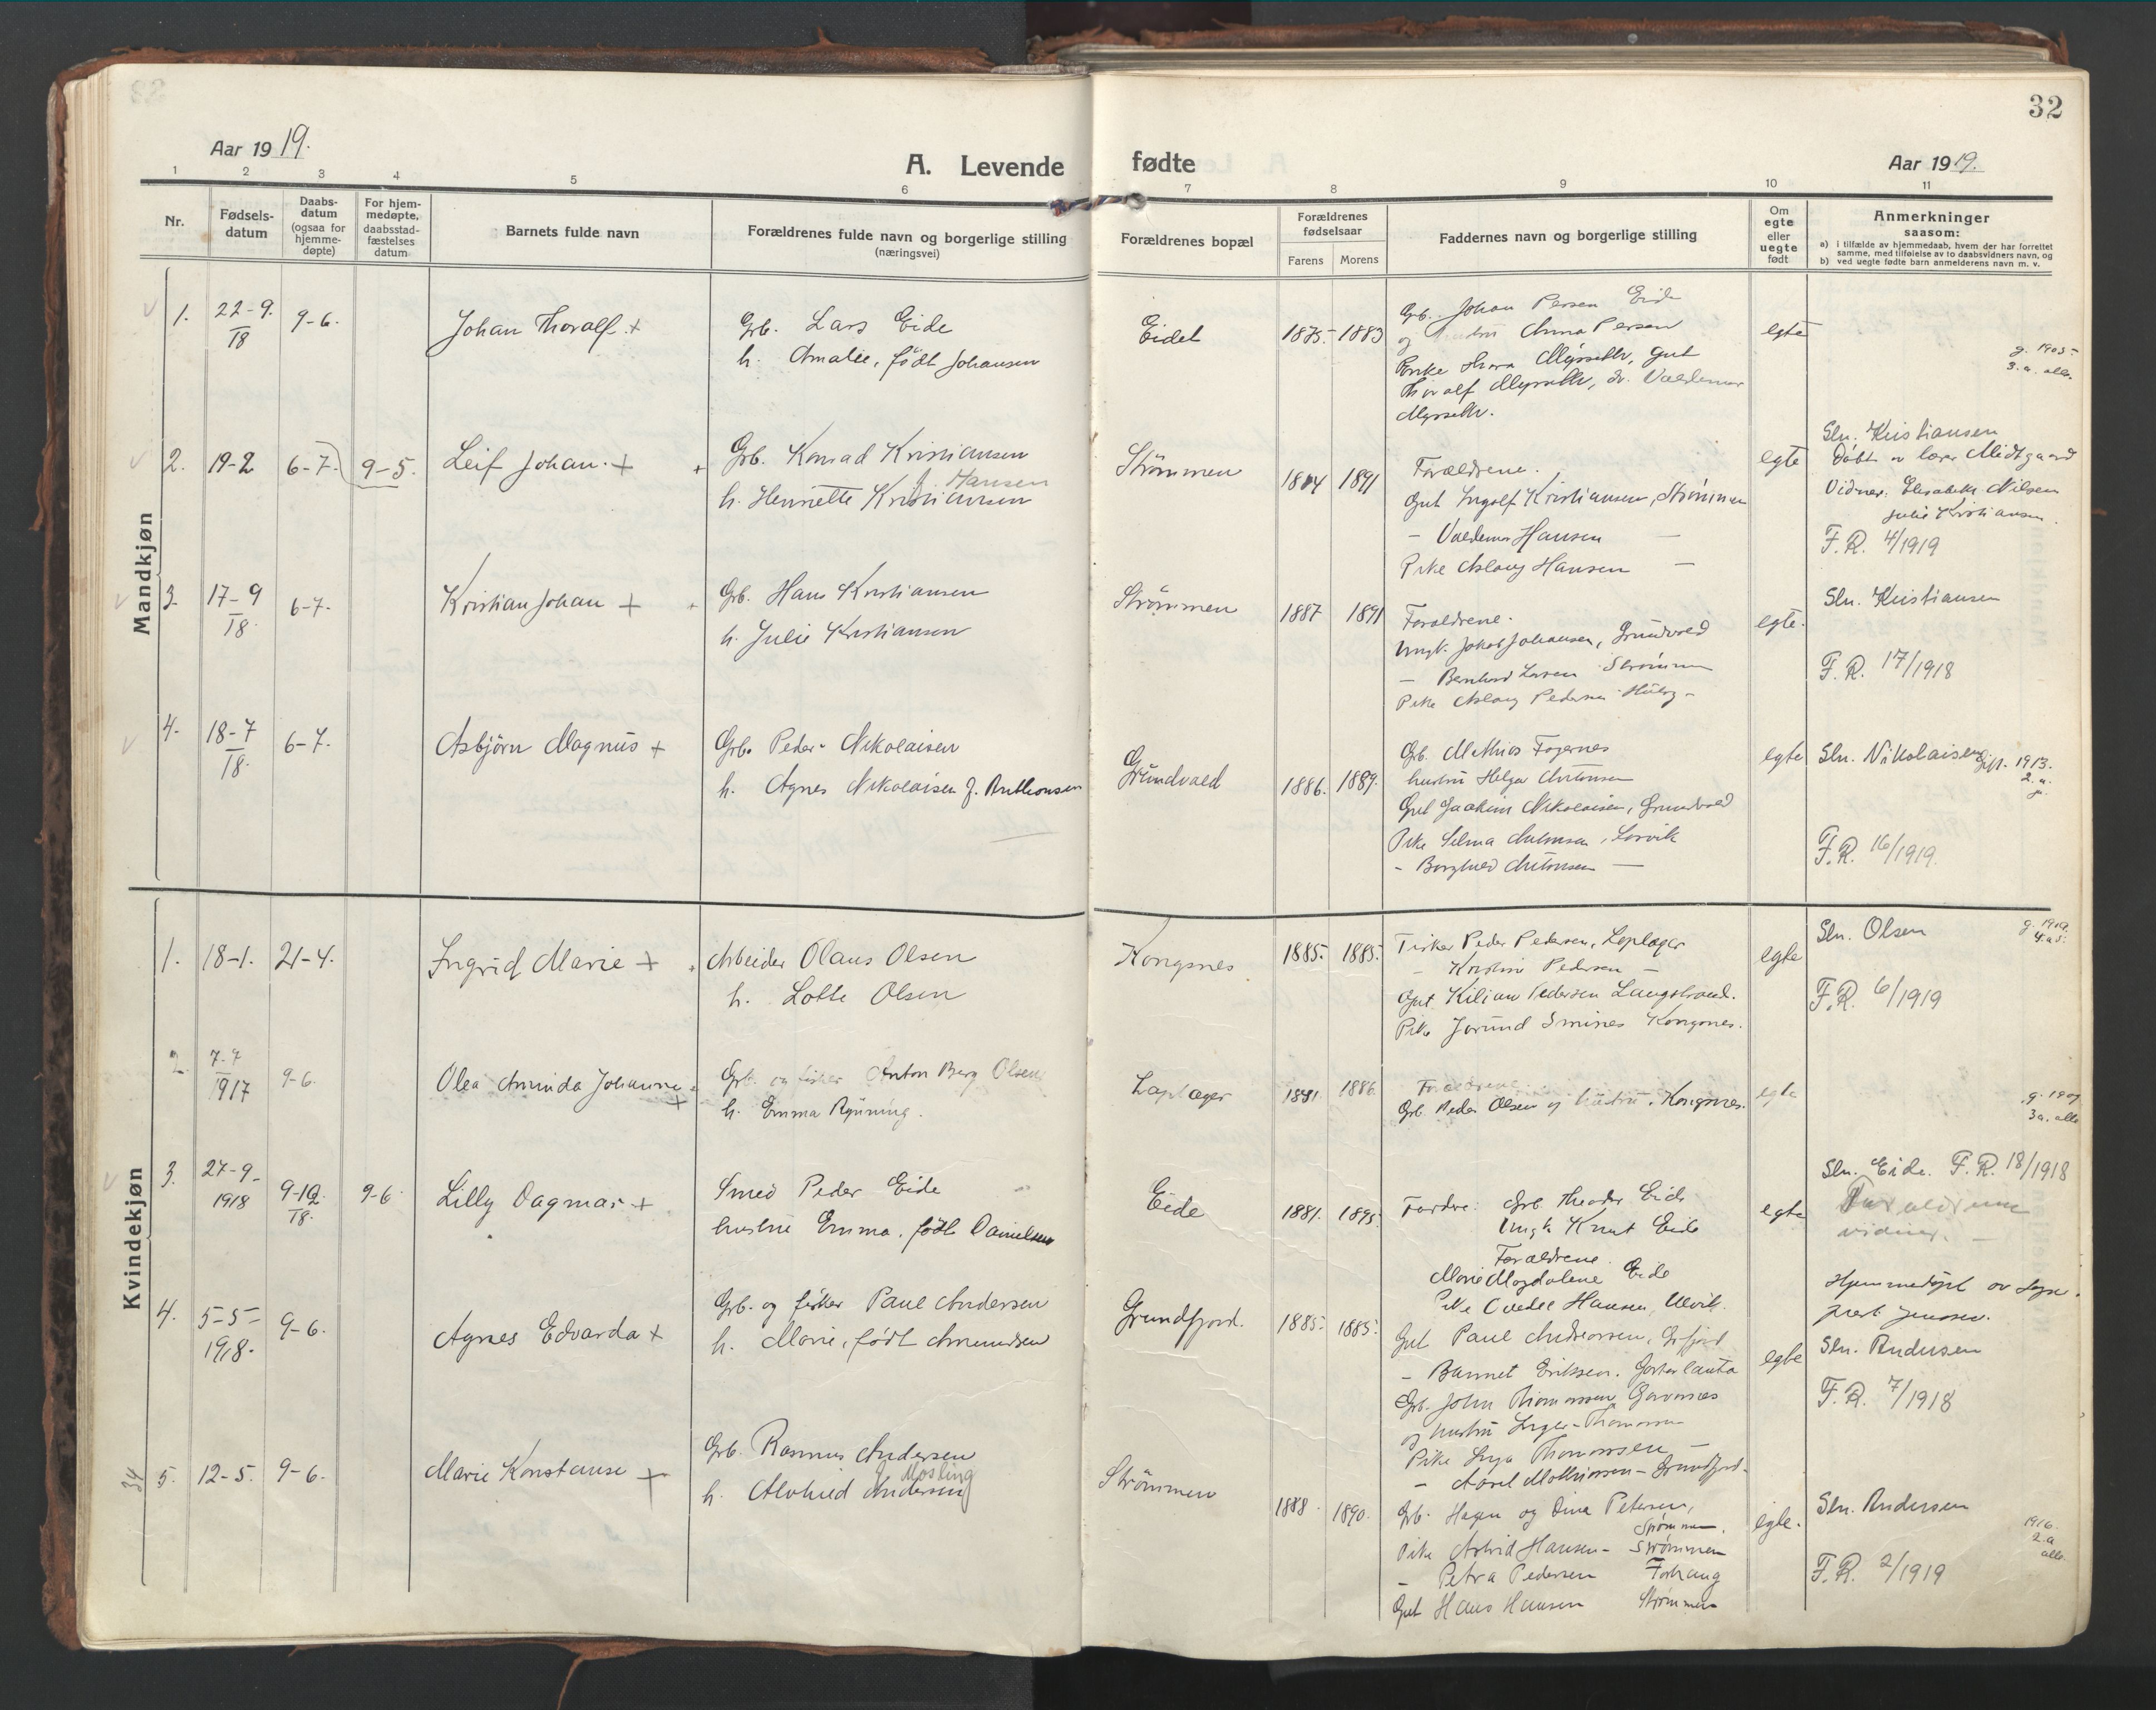 32
Aar 1919.
A. Levende fødte
Aar 1919.
1 2 3 4 5 6 7 8 9 10 11
Nr.
Fødsels-
datum
Daabs-
datum
(ogsaa for
hjemme-
døpte)
For hjem-
medøpte,
daabsstad-
fæstelses
datum
Barnets fulde navn
Forældrenes fulde navn og borgerlige stilling
(næringsvei)
Forældrenes bopæl
Forældrenes
fødselsaar
Farens Morens
Faddernes navn og borgerlige stilling
Om
egte
eller
uegte
født
Anmerkninger
saasom:
a) i tilfælde av hjemmedaab, hvem der har forrettet
samme, med tilføielse av to daabsvidners navn, og
b) ved uegte fødte barn anmelderens navn m. v.
Mandkjøn
1. 22-9. 18 9-6. Johan Thoralf +
Grb. Lars Eide
h. Amalie, født Johansen
Eidet 1875- 1883
Grb. Johan Persen Eide
og hustru Anna Persen
Thoralf
egte
g. 1905-
3. a. alle.
2. 19-2 6-7. 9-5. Leif Johan. +
Grb. Konrad Kristiansen
f. Hansen
h. Henriette Kristiansen
Strømmen 1891
Forældrene.
Gut Ingolf Kristiansen, Strømmen
- Valdemar Hansen -
Pike Aslaug Hansen -
egte
Sln. Kristiansen
Døbt av lærer Midtgaard
Vidner: Elisabeth Nilsen
Julie Kristiansen.
F.R. 4/1919
3. 17-9 18. 6-7. Kristian Johan +
Grb. Hans Kristiansen
h. Julie Kristiansen
Strømmen 1887 1891
Forældrene.
Ungk. Jakob Johansen, Grundvold
- Bernhard Larsen Strømmen
Pike Aslaug Pedersen
egte.
Sln. Kristiansen
F.R. 17/1918
4. 18-7 18. 6-7. Asbjørn Magnus +
Grb. Peder Nikolaisen
h. Agnes Nikolaisen f. Anthonsen
Grundvold 1886. 1889.
Grb. Mathias Fagernes
hustru Helga Antonsen
Gut Joakim Nikolaisen, Grundvold
Pike Selma Antonsen, Larvik
- Borghild Antonsen -
egte
Sln. Nikolaisen gift. 1913.
2. a.
F.R. 16/1919.
Kvindekjøn
1. 18-1. 21-4. Ingrid Marie +
Arbeider Olaus Olsen
h. Lotte Olsen
Kongsnes 1885. 1885.
Fisker Peder Pedersen, Leplager
- Kristine Pedersen -
Gut Kilian Pedersen Langstrand.
Pike Jorund Kongsnes.
egte
Sln. Olsen
F.R. 6/1919
2. 1917 9-6. Olea Aminda Johanne +
Grb. og fisker Anton Berg Olsen
h. Emma Ryning.
1886.
Forældrene.
Grb. Peder Olsen og hustru. Kongsnes.
egte
3a. alle
3. 27-9- 1918 9-10 18. 9-6. Lilly Dagmar +
Smed Peder Eide
hustru Emma, født Danielsen
Eide 1881. 1895.
Faddre: Grb. Theodor Eide
Ungk Knut Eide
Forældrene.
Marie Magdalene Eide
egte
Sln. Eide. F.R. 18/1918
Forældrene
vidner. -
Hjemmedøpt av sogne-
prest Jenssen.
4. 5-5- 1918. 9-6. Agnes Edvarda +
Grb. og fisker Paul Andersen
h. Marie, født Amundsen
Grundfjord. 1885. 1885.
Gut Paul Andreassen,
Grb. John Thomassen
og hustru Inger Thomassen
Pike Inga Thomassen -
- Aasel Mathiassen - Grundfjord.
egte
Sln. Andersen
F.R. 7/1918
34 5. 12-5. 9-6. Marie Konstanse +
Grb. Rasmus Andersen
f. Mosling
h. Alvhild Andersen
Strømmen 1888. 1890.
Grb. Hagen og Dina Petersen,
Strømmen.
Pike Astrid Hansen - Strømmen
- Petra Pedersen
Gut Hans Hansen Strømmen
egte.
Sln. Andersen
1916.
2.a
alle.
F.R. 2/1919